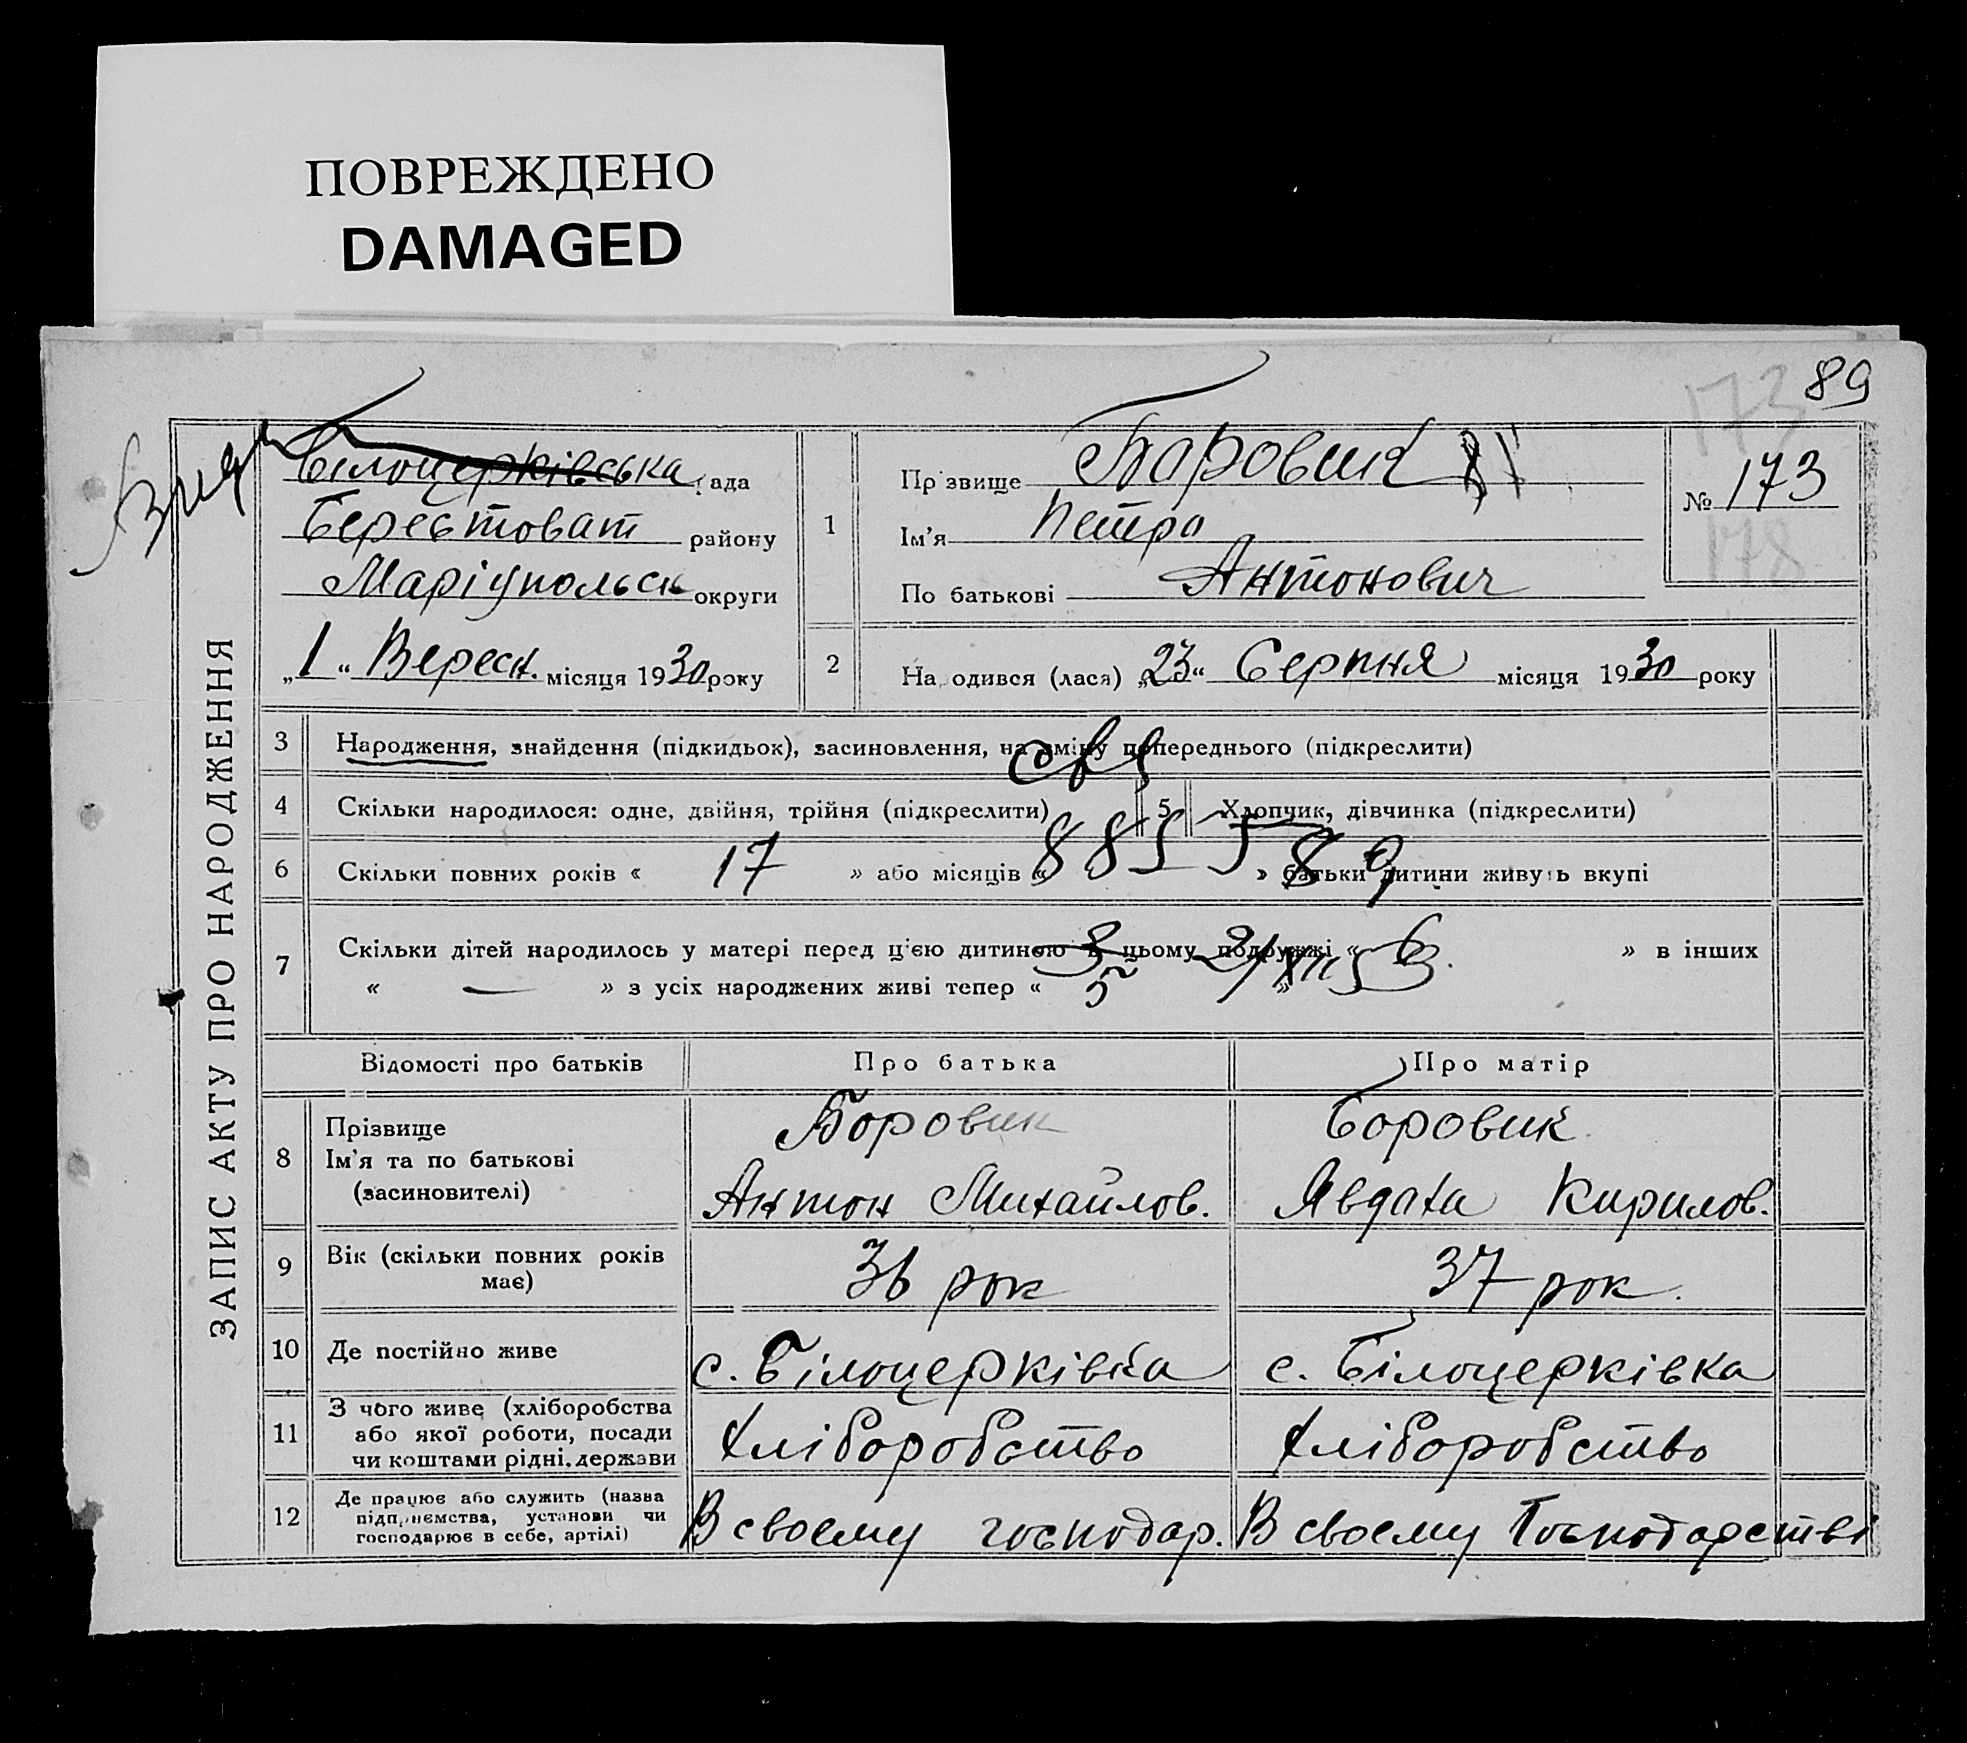 ПОВРЕЖДЕНО
DAMAGED
89
173
ЗАПИС АКТУ ПРО НАРОДЖЕННЯ
Білоцерківська рада
Берестоват району
Маріупольськ округи
„1“ Вересн. місяця 1930 року
1
Прізвище Баровик
Ім'я Петро
По батькові Антонович
№ 173
178
2
Народився (лася) „23“ Серпня місяця 1930 року
3 Народження, знайдення (підкидьок), засиновлення, на зміну попереднього (підкреслити)
4 Скільки народилося: одне, двійня, трійня (підкреслити) 5 Хлопчик, дівчинка (підкреслити)
6 Скільки повних років « 17 » або місяців « » батьки дитини живуть вкупі
7 Скільки дітей народилось у матері перед цією дитиною в цьому подружжі « 6 » в інших
« — » з усіх народжених живі тепер « 5 »
Відомості про батьків Про батька Про матір
8 Прізвище
Ім'я та по батькові
(засиновителі)
Боровик
Антон Михайлов.
Боровик
Явдоха Кирилов.
9 Вік (скільки повних років
має)
36 рок
37 рок.
10 Де постійно живе с. Білоцерківка с. Білоцерківка
11 З чого живе (хліборобства
або якої роботи, посади
чи коштами рідні, держави
Хліборобство
Хліборобство
12 Де працює або служить (назва
підприємства, установи чи
господарює в себе, артілі)
В своему господар.
В своему Господарстві